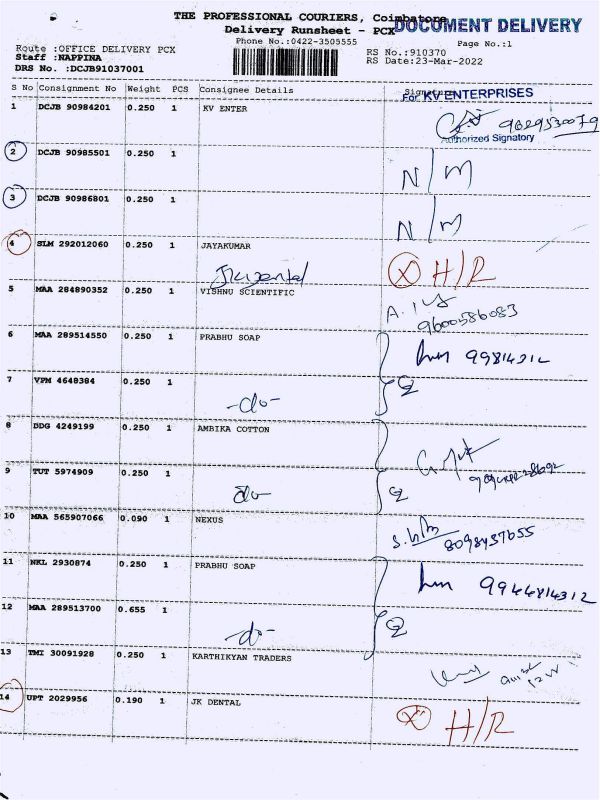 THE PROFESSIONAL COURIERS, Coimbatore
DOCUMENT DELIVERY
Delivery Runsheet - PCX
Phone No.:0422-3505555
Page No.:1
Route :OFFICE DELIVERY PCX
RS No.:910370
Staff :NAPPINA
RS Date:23-Mar-2022
DRS No. :DCJB91037001
S No Consignment No Weight PCS Consignee Details Signature
For KV ENTERPRISES
1 DCJB 90984201 0.250 1 KV ENTER
Authorized Signatory
2 DCJB 90985501 0.250 1
N/M
3 DCJB 90986801 0.250 1
N/M
4 SLM 292012060 0.250 1 JAYAKUMAR
X H/R
5 MAA 284890352 0.250 1 VISHNU SCIENTIFIC
9600586083
6 MAA 289514550 0.250 1 PRABHU SOAP
7 VPM 4648384 0.250 1
-do-
8 DDG 4249199 0.250 1 AMBIKA COTTON
9 TUT 5974909 0.250 1
do-
10 MAA 565907066 0.090 1 NEXUS
8098437655
11 NKL 2930874 0.250 1 PRABHU SOAP
9944814312
12 MAA 289513700 0.655 1
-do-
13 TMI 30091928 0.250 1 KARTHIKYAN TRADERS
14 UPT 2029956 0.190 1 JK DENTAL
X H/R